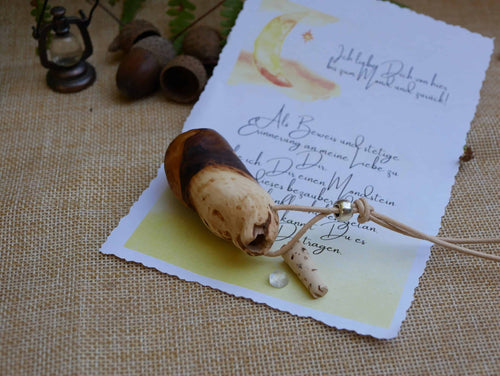 Ich liebe Dich von hier
bis zum Mond und zurück!
Als Beweis und stetige
Erinnerung an meine Liebe zu
Dir
ich Dir einen Mondstein
dieses
Du es
tragen.